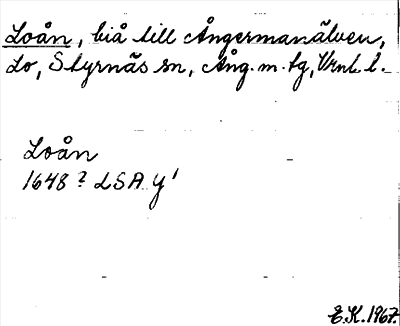 Loån, biå till Ångermanälven,
Lo, Styrnäs sn, Ång. m. tg, Vrnl. l.
Loån
1648? LSA Y¹
E.K. 1967.